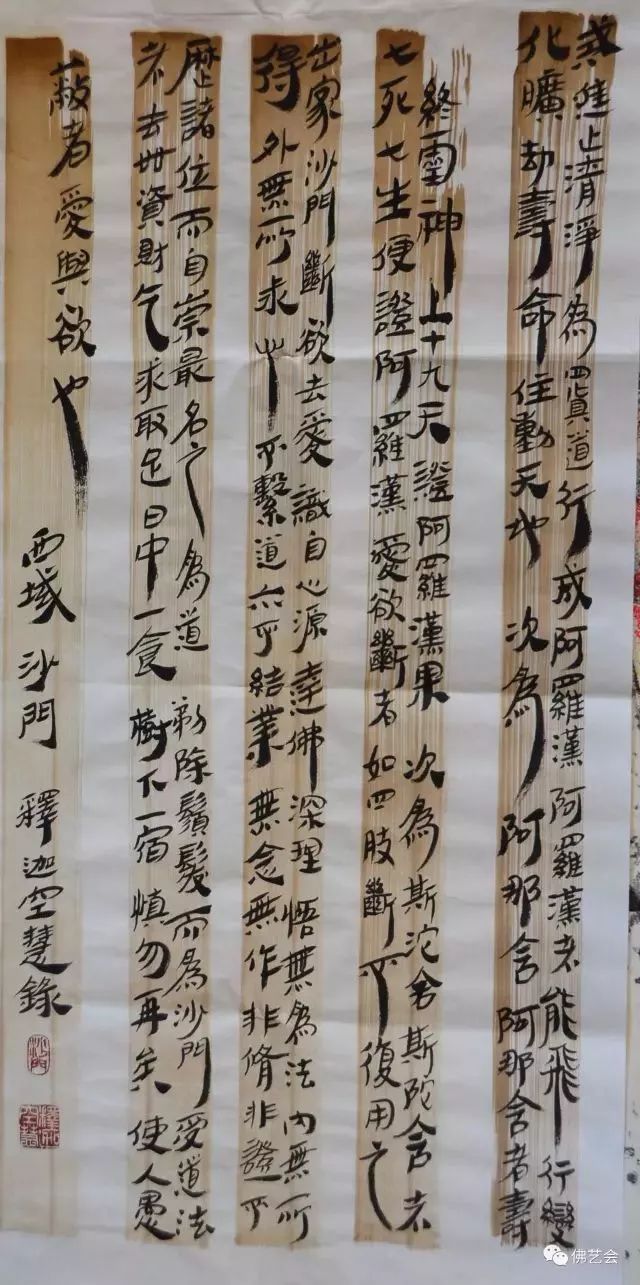 戒進止清淨為四真道行成阿羅漢阿羅漢者能飛行變
化曠劫壽命住動天地次為阿那含阿那含者壽
終靈神上十九天證阿羅漢果次為斯沱含斯陀含者
七死七生便證阿羅漢愛欲斷者如四肢斷不復用之
出家沙門斷欲去愛識自心源達佛深理悟無為法內無所
得外無所求心不繫道亦不結業無念無作非脩非證不
歷諸位而自崇最名之為道剃除鬚髮而為沙門受道法
者去世資財乞求取足日中一食樹下一宿慎勿再矣使人愚
蔽者愛與欲也
西域沙門釋迦空慧錄
沙門
佛艺会